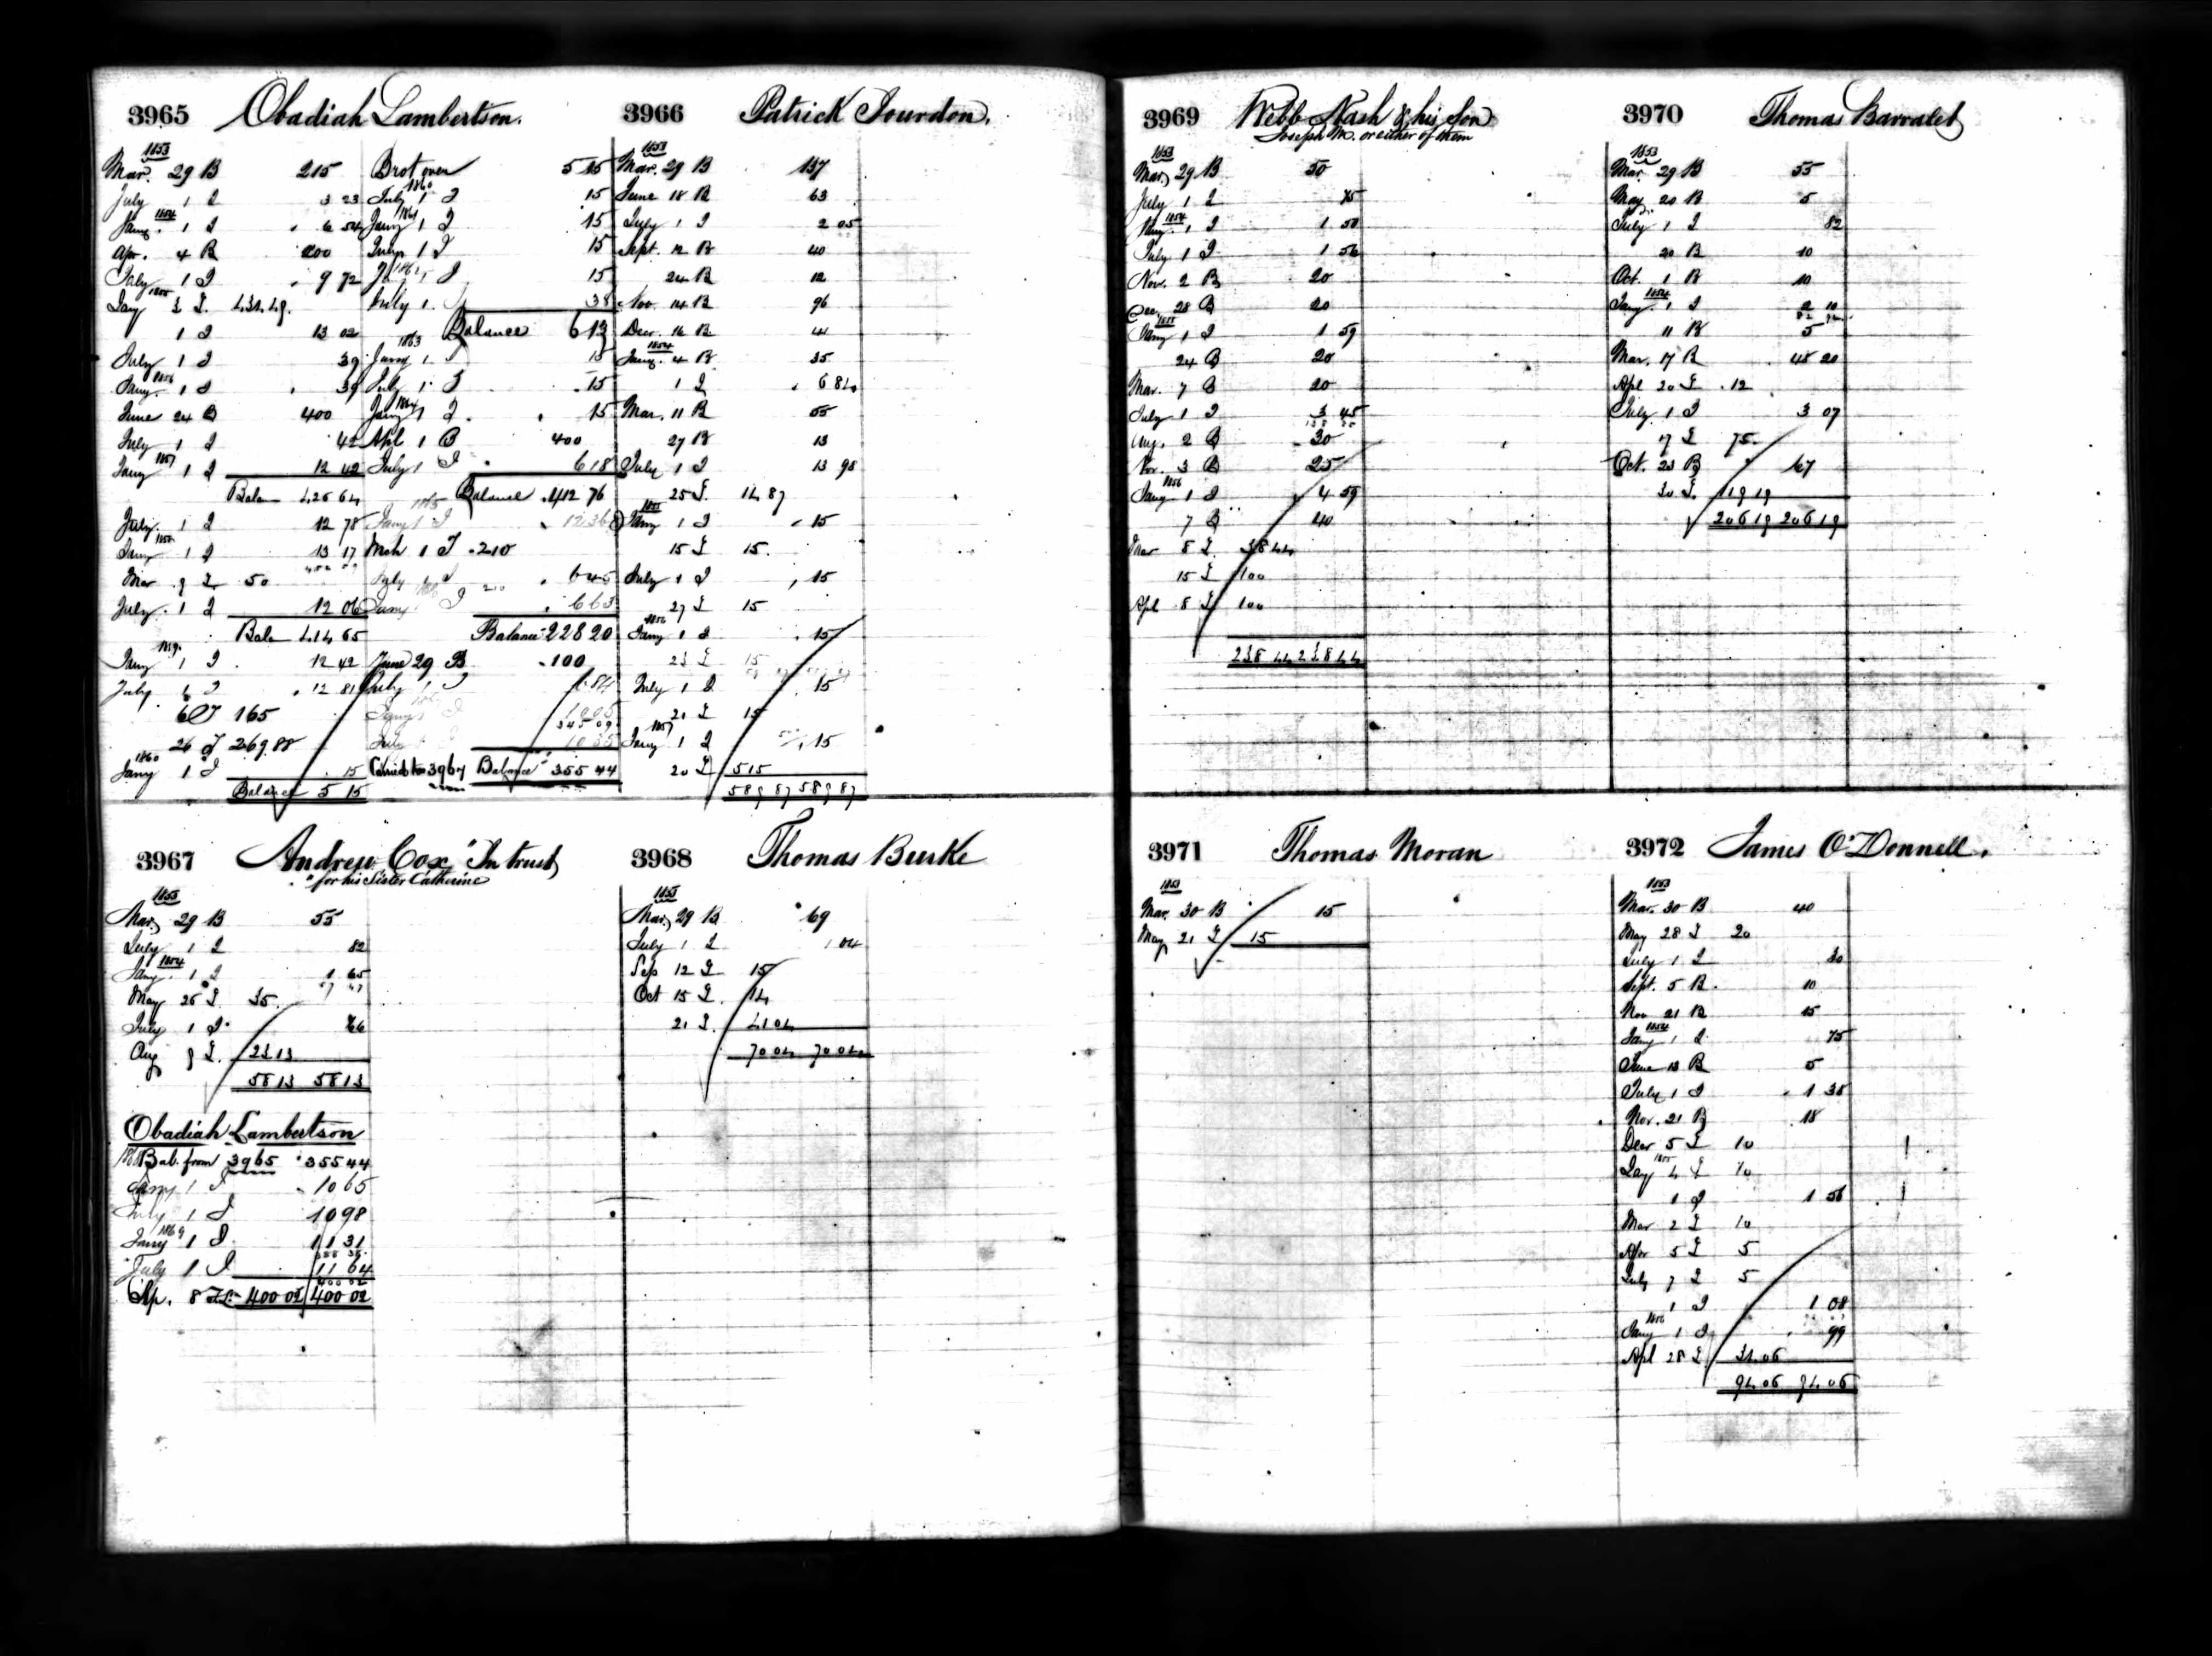 3965 Obadiah Lambertson.
1853
Mar. 29 B 215
July 1 I 3 23
1854
Jany. 1 I 6 54
Apr. 4 B 200
July 1 I 9 72
1855
Jany 3 L 434.49.
1 I 13 02
July 1 I 39
1856
Jany. 1 I 39
June 24 B 400
July 1 I 42
1857
Jany 1 I 12 42
Balan 426 64
July. 1 I 12 78
1858
Jany 1 I 13 17
Mar 9 L 50
July. 1 I 12 06
Bala 414 65
1859.
Jany 1 I 12 42
July 1 I 12 81
6 I 165
26 I 269.88
1860
Jany 1 I 15
Balance 5 15
Brot over 5 15
1860
July 1 I 15
1861
Jany 1 I 15
July 1 I 15
1862
1 I 15
July 1. I 38
Balance 6 13
1863
Jany 1. I 15
July 1. I 15
1864
Jany 1 I 15
Apl 1 B 400
July 1 I 6 18
Balance 412 76
1865
Jany 1 I 12 36
Mch 1 I 210
July 1 I 6 45
Jany I 6 63
Balance 228 20
June 29 B 100
July I 6 84
345 09
10 35
Carried to 3967 Balance 355 44
3966 Patrick Jourdon.
1853
Mar. 29 B 137
June 18 B 63
July 1 I 2 05
Sept. 12 B 40
24 B 12
Nov. 14 B 96
Decr. 16 B 44
1854
Jany. 4 B 35
1 I 6 84
Mar. 11 B 55
27 B 13
July 1 I 13 98
25 L 14 87
1855
Jany 1 I 15
15 L 15.
July 1 I 15
27 L 15
1856
Jany 1 I 15
23 L 15
July 1 I 15
21 L 15
1857
Jany 1 I 15
20 L 515
589 87 589 87
3967 Andrew Cox "In trust
" for his Sister Catherine
1853
Mar. 29 B 55
July 1 I 82
1854
Jany. 1 I 1 65
May 26 L 35.
July 1 I 66
Aug 9 L. 23 13
58 13 58 13
Obadiah Lambertson
Bal. from 3965 355 44
Jany 1 I 10 65
July 1 I 10 98
1869
Jany 1 I 11 31
388 38
July 1 I 11 64
400 02
Ap. 8 400 02 400 02
3968 Thomas Burke
1853
Mar. 29 B 69
July 1 I 1 04
Sep 12 L 15
Oct 15 L. 14
21 L. 41 04
70 04 70 04
3969 Webb Nash & his Son
Joseph M. or either of them
1853
Mar. 29 B 50
July 1 I 75
1854
Jany. 1 I 1 50
July 1 I 1 56
Nov. 2 B 20
Dec. 28 B 20
1855
Jany 1 I 1 59
24 B 20
Mar. 7 B 20
July 1 I 3 45
Aug. 2 B 30
Nov. 3 B 25
1856
Jany 1 I 4 59
7 B 40
Mar 8 L 38 44
15 L 100
Apl 8 L 100
238 44 238 44
3970 Thomas Barralet
1853
Mar. 29 B 55
May 20 B 5
July 1 I 82
20 B 10
Oct. 1 B 10
1854
Jany 1 I 2 10
11 B 5
Mar. 17 B 48 20
Apl 20 L 12
July 1 I 3 07
17 L 75.
Oct. 23 B 67
30 L. 119 19
206 19 206 19
3971 Thomas Moran
1853
Mar. 30 B 15
May 21 L 15
3972 James O'Donnell.
1853
Mar. 30 B 40
May 28 L 20
July 1 I 30
Sept. 5 B 10
Nov 21 B 15
1854
Jany 1 I 75
June 13 B 5
July 1 I 1 38
Nov. 21 B 18
Decr 5 L 10
1855
Jany 4 L 10
1 I 1 56
Mar 2 L 10
Apr 5 L 5
July 7 L 5
1 I 1 08
1856
Jany 1 I 99
Apl 28 L 34.06
94.06 94.06